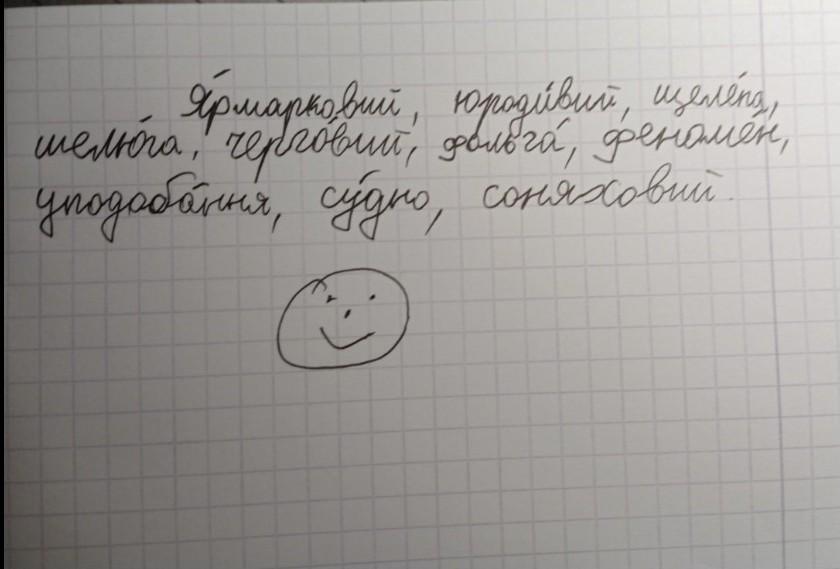 Я́рмарковий, юроди́вий, щеле́па,
шелю́га, черго́вий, фольга́, феноме́н,
уподоба́ння, су́дно, соняховий.